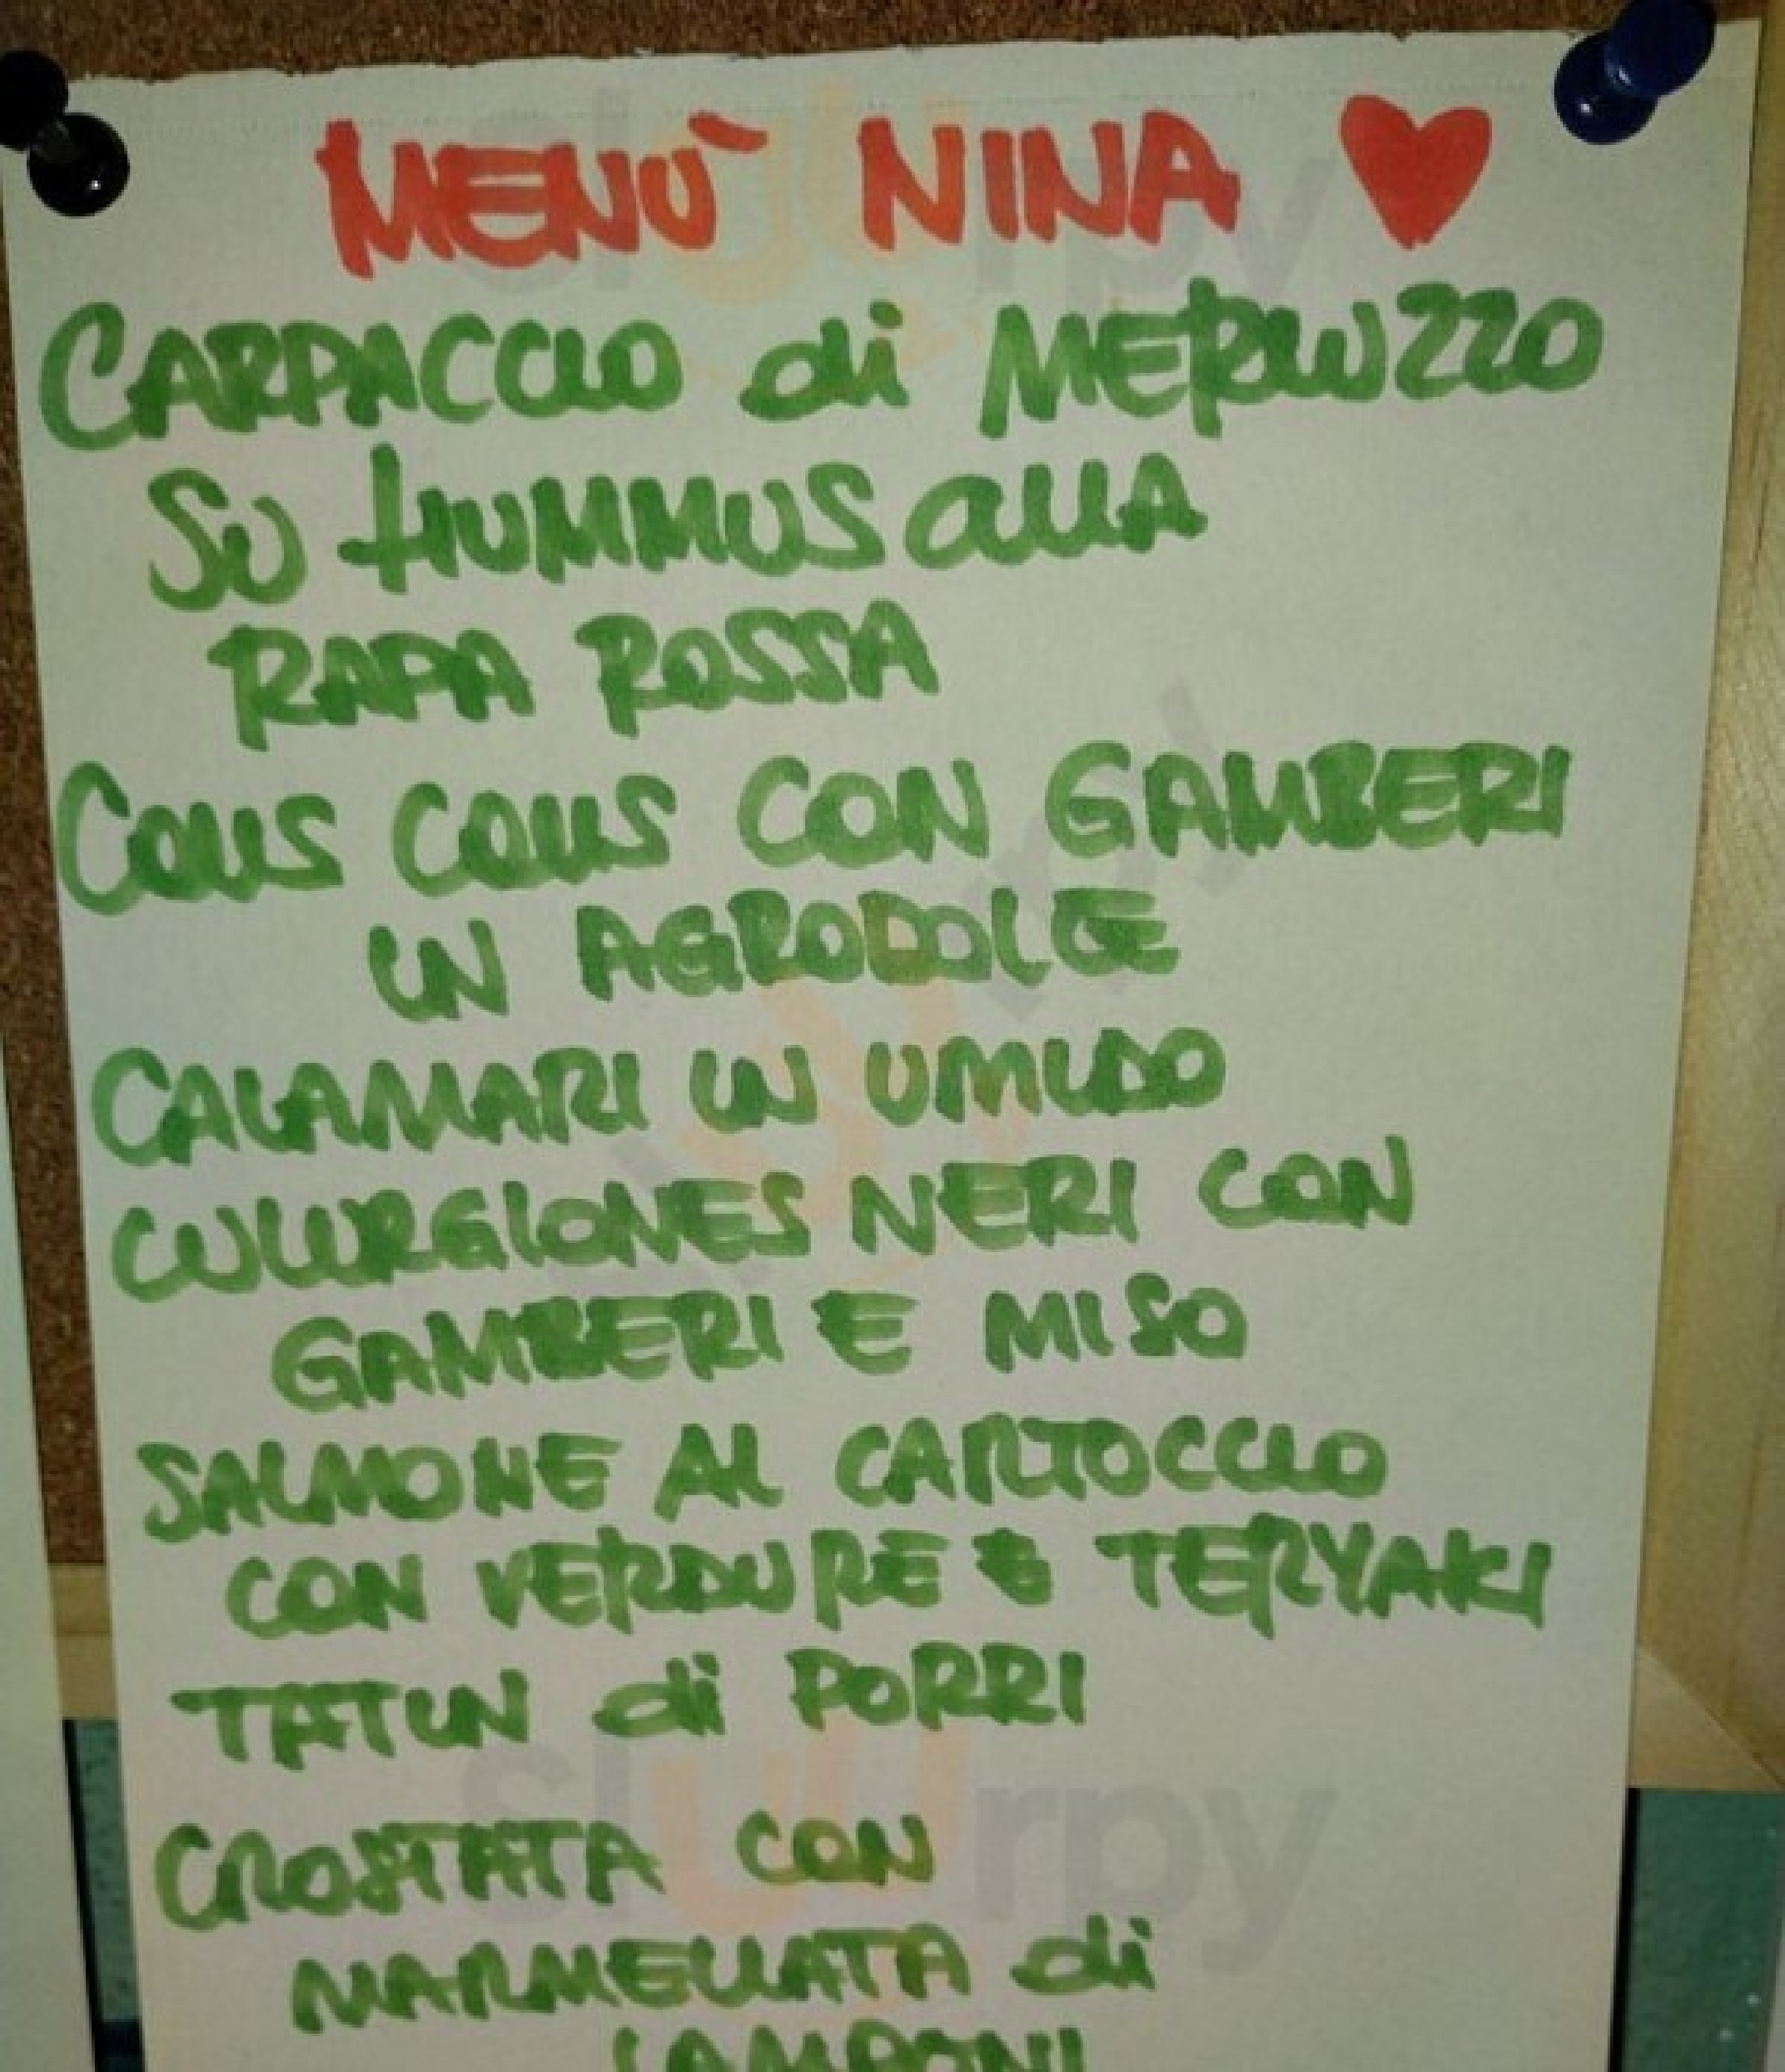 MENÙ NINA
CARPACCIO di MERLUZZO
SU HUMMUS allA
RAPA ROSSA
COUS COUS CON GAMBERI
IN AGRODOLCE
CALAMARI IN UMIDO
CULURGIONES NERI CON
GAMBERI E MISO
SALMONE AL CARTOCCIO
CON VERDURE E TERYAKI
TATIN di PORRI
CROSTATA CON
MARMELLATA di
LAMPONI
sluurpy
sluurpy